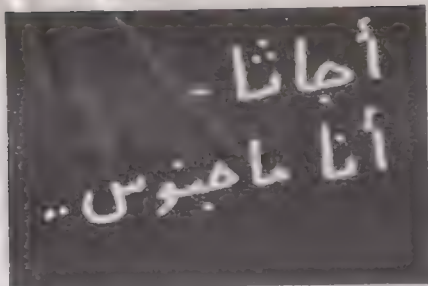 أجاثا -
أنا ماجنوس ..